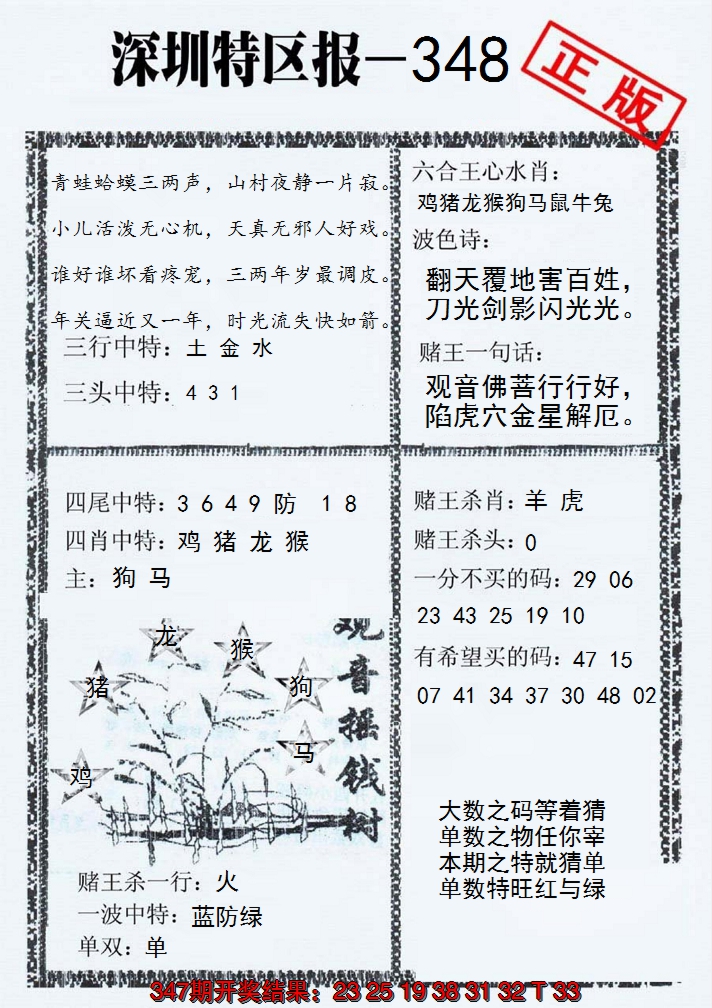 深圳特区报—348
正版
青蛙蛤蟆三两声，山村夜静一片寂。
小儿活泼无心机，天真无邪人好戏。
谁好谁坏看疼宠，三两年岁最调皮。
年关逼近又一年，时光流失快如箭。
三行中特：土 金 水
三头中特：4 3 1
六合王心水肖：
鸡猪龙猴狗马鼠牛兔
波色诗：
翻天覆地害百姓，
刀光剑影闪光光。
赌王一句话：
观音佛菩行行好，
陷虎穴金星解厄。
四尾中特：3 6 4 9 防 1 8
四肖中特：鸡 猪 龙 猴
主：狗 马
龙
猴
猪
狗
马
鸡
观音摇钱树
赌王杀一行：火
一波中特：蓝防绿
单双：单
赌王杀肖：羊 虎
赌王杀头：0
一分不买的码：29 06
23 43 25 19 10
有希望买的码：47 15
07 41 34 37 30 48 02
大数之码等着猜
单数之物任你宰
本期之特就猜单
单数特旺红与绿
347期开奖结果：23 25 19 38 31 32 T 33